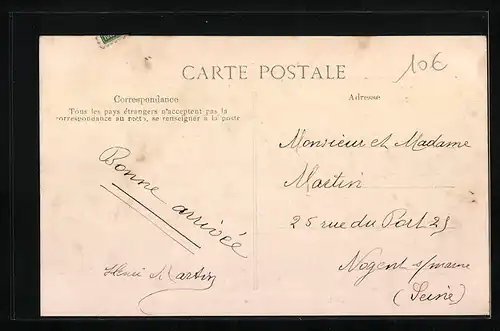 CARTE POSTALE
10€
Correspondance
Tous les pays étrangers n'acceptent pas la
correspondance au recto, se renseigner à la poste
Adresse
Bonne arrivée
Henri Martin
Monsieur et Madame
Martin
25 rue du Port 25
Nogent s/marne
(Seine)